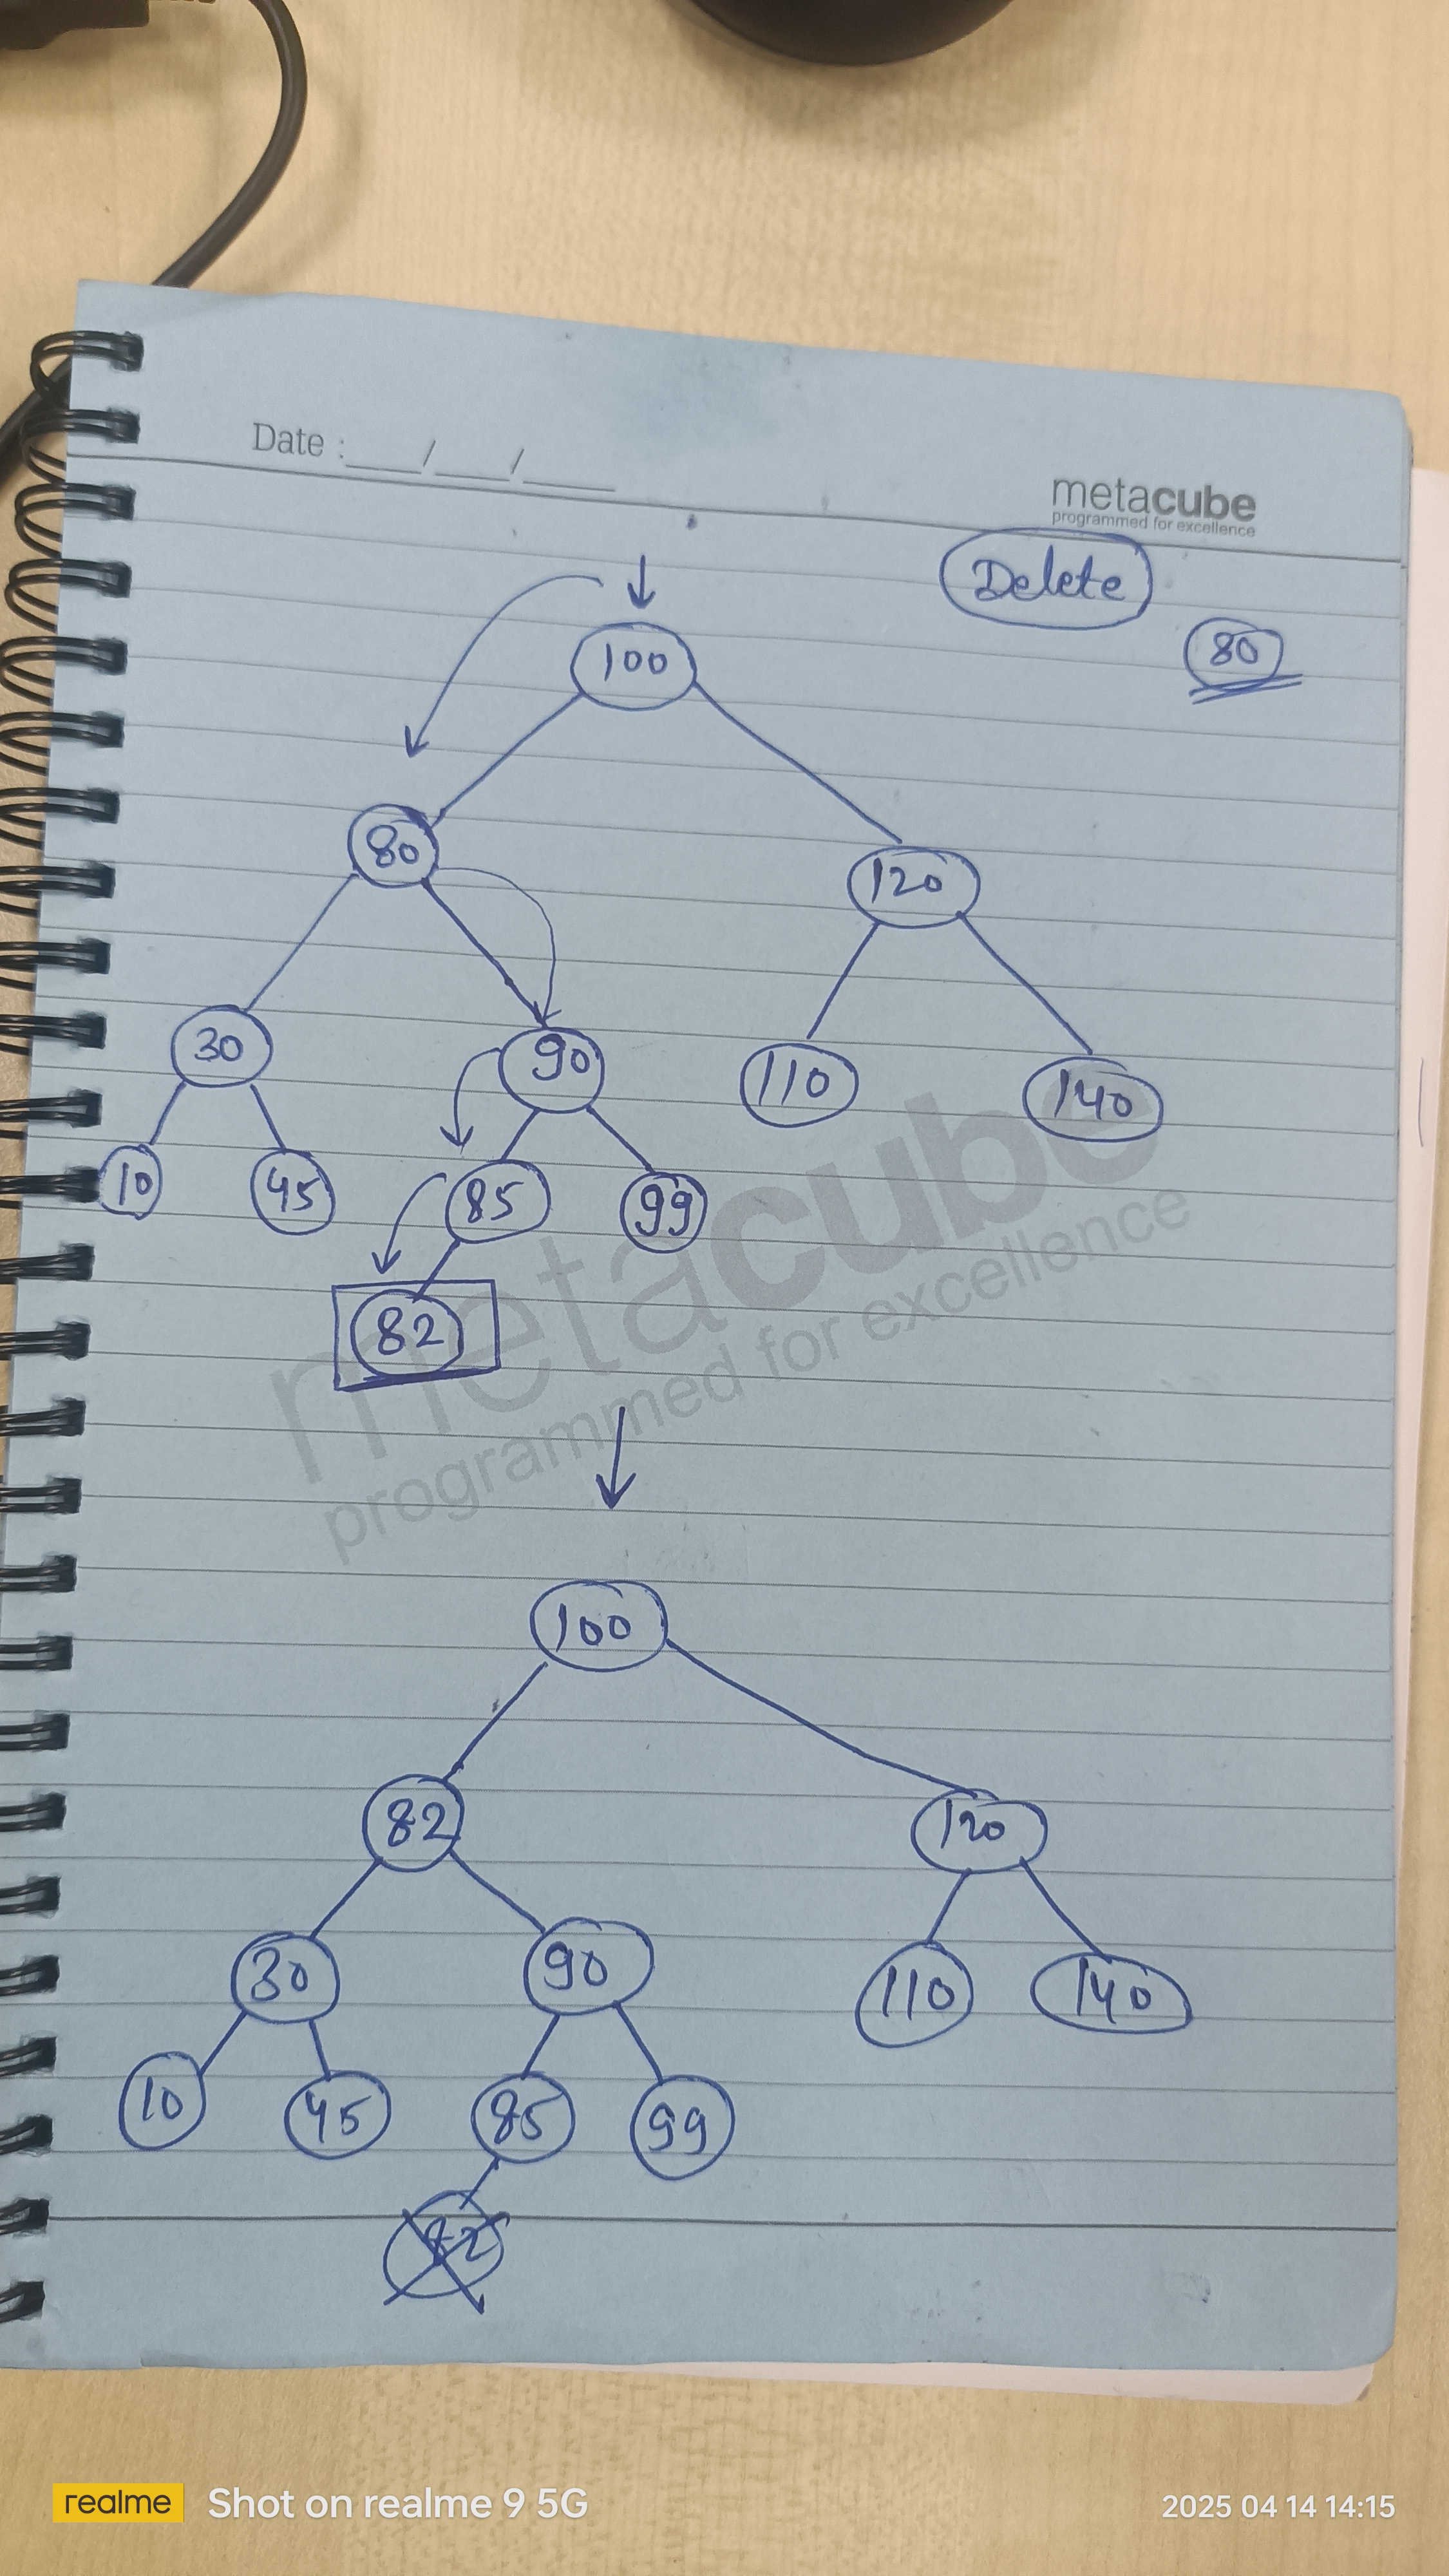 Date : ___/___/____
metacube
programmed for excellence
Delete
80
100
80
120
30 90 110 140
10 45 85 99
82
metacube
programmed for excellence
100
82 120
30 90 110 140
10 45 85 99
82
realme Shot on realme 9 5G 2025 04 14 14:15